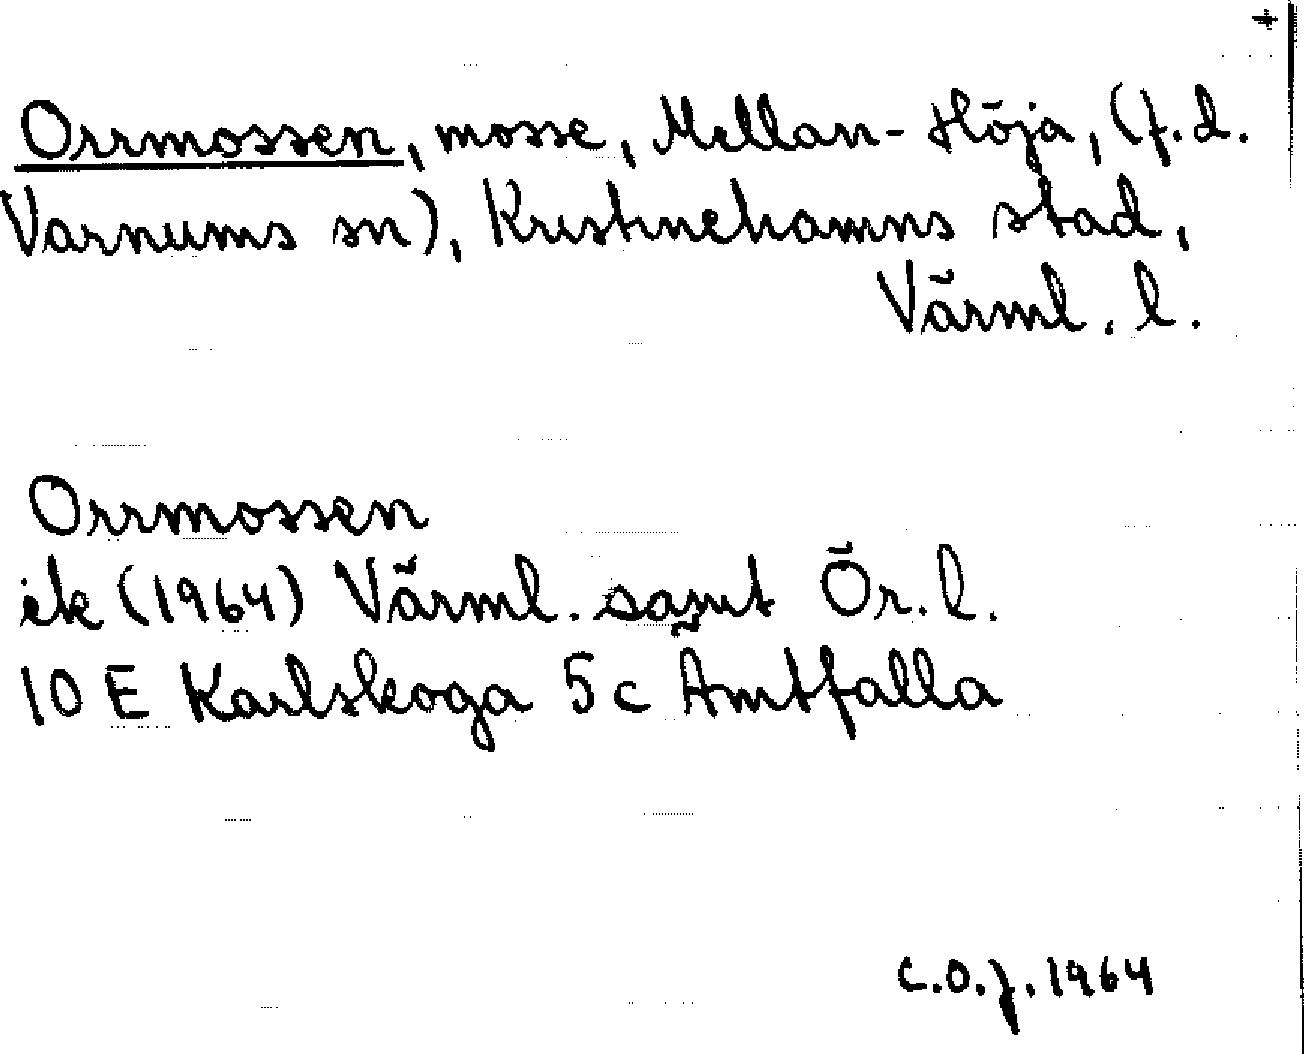 +
Orrmossen, mosse, Mellan-Höja, (f.d.
Varnums sn), Kristinehamns stad,
Värml. l.
Orrmossen
ek (1964) Värml. samt Ör. l.
10 E Karlskoga 5 c Ämtfalla
C.O.J. 1964